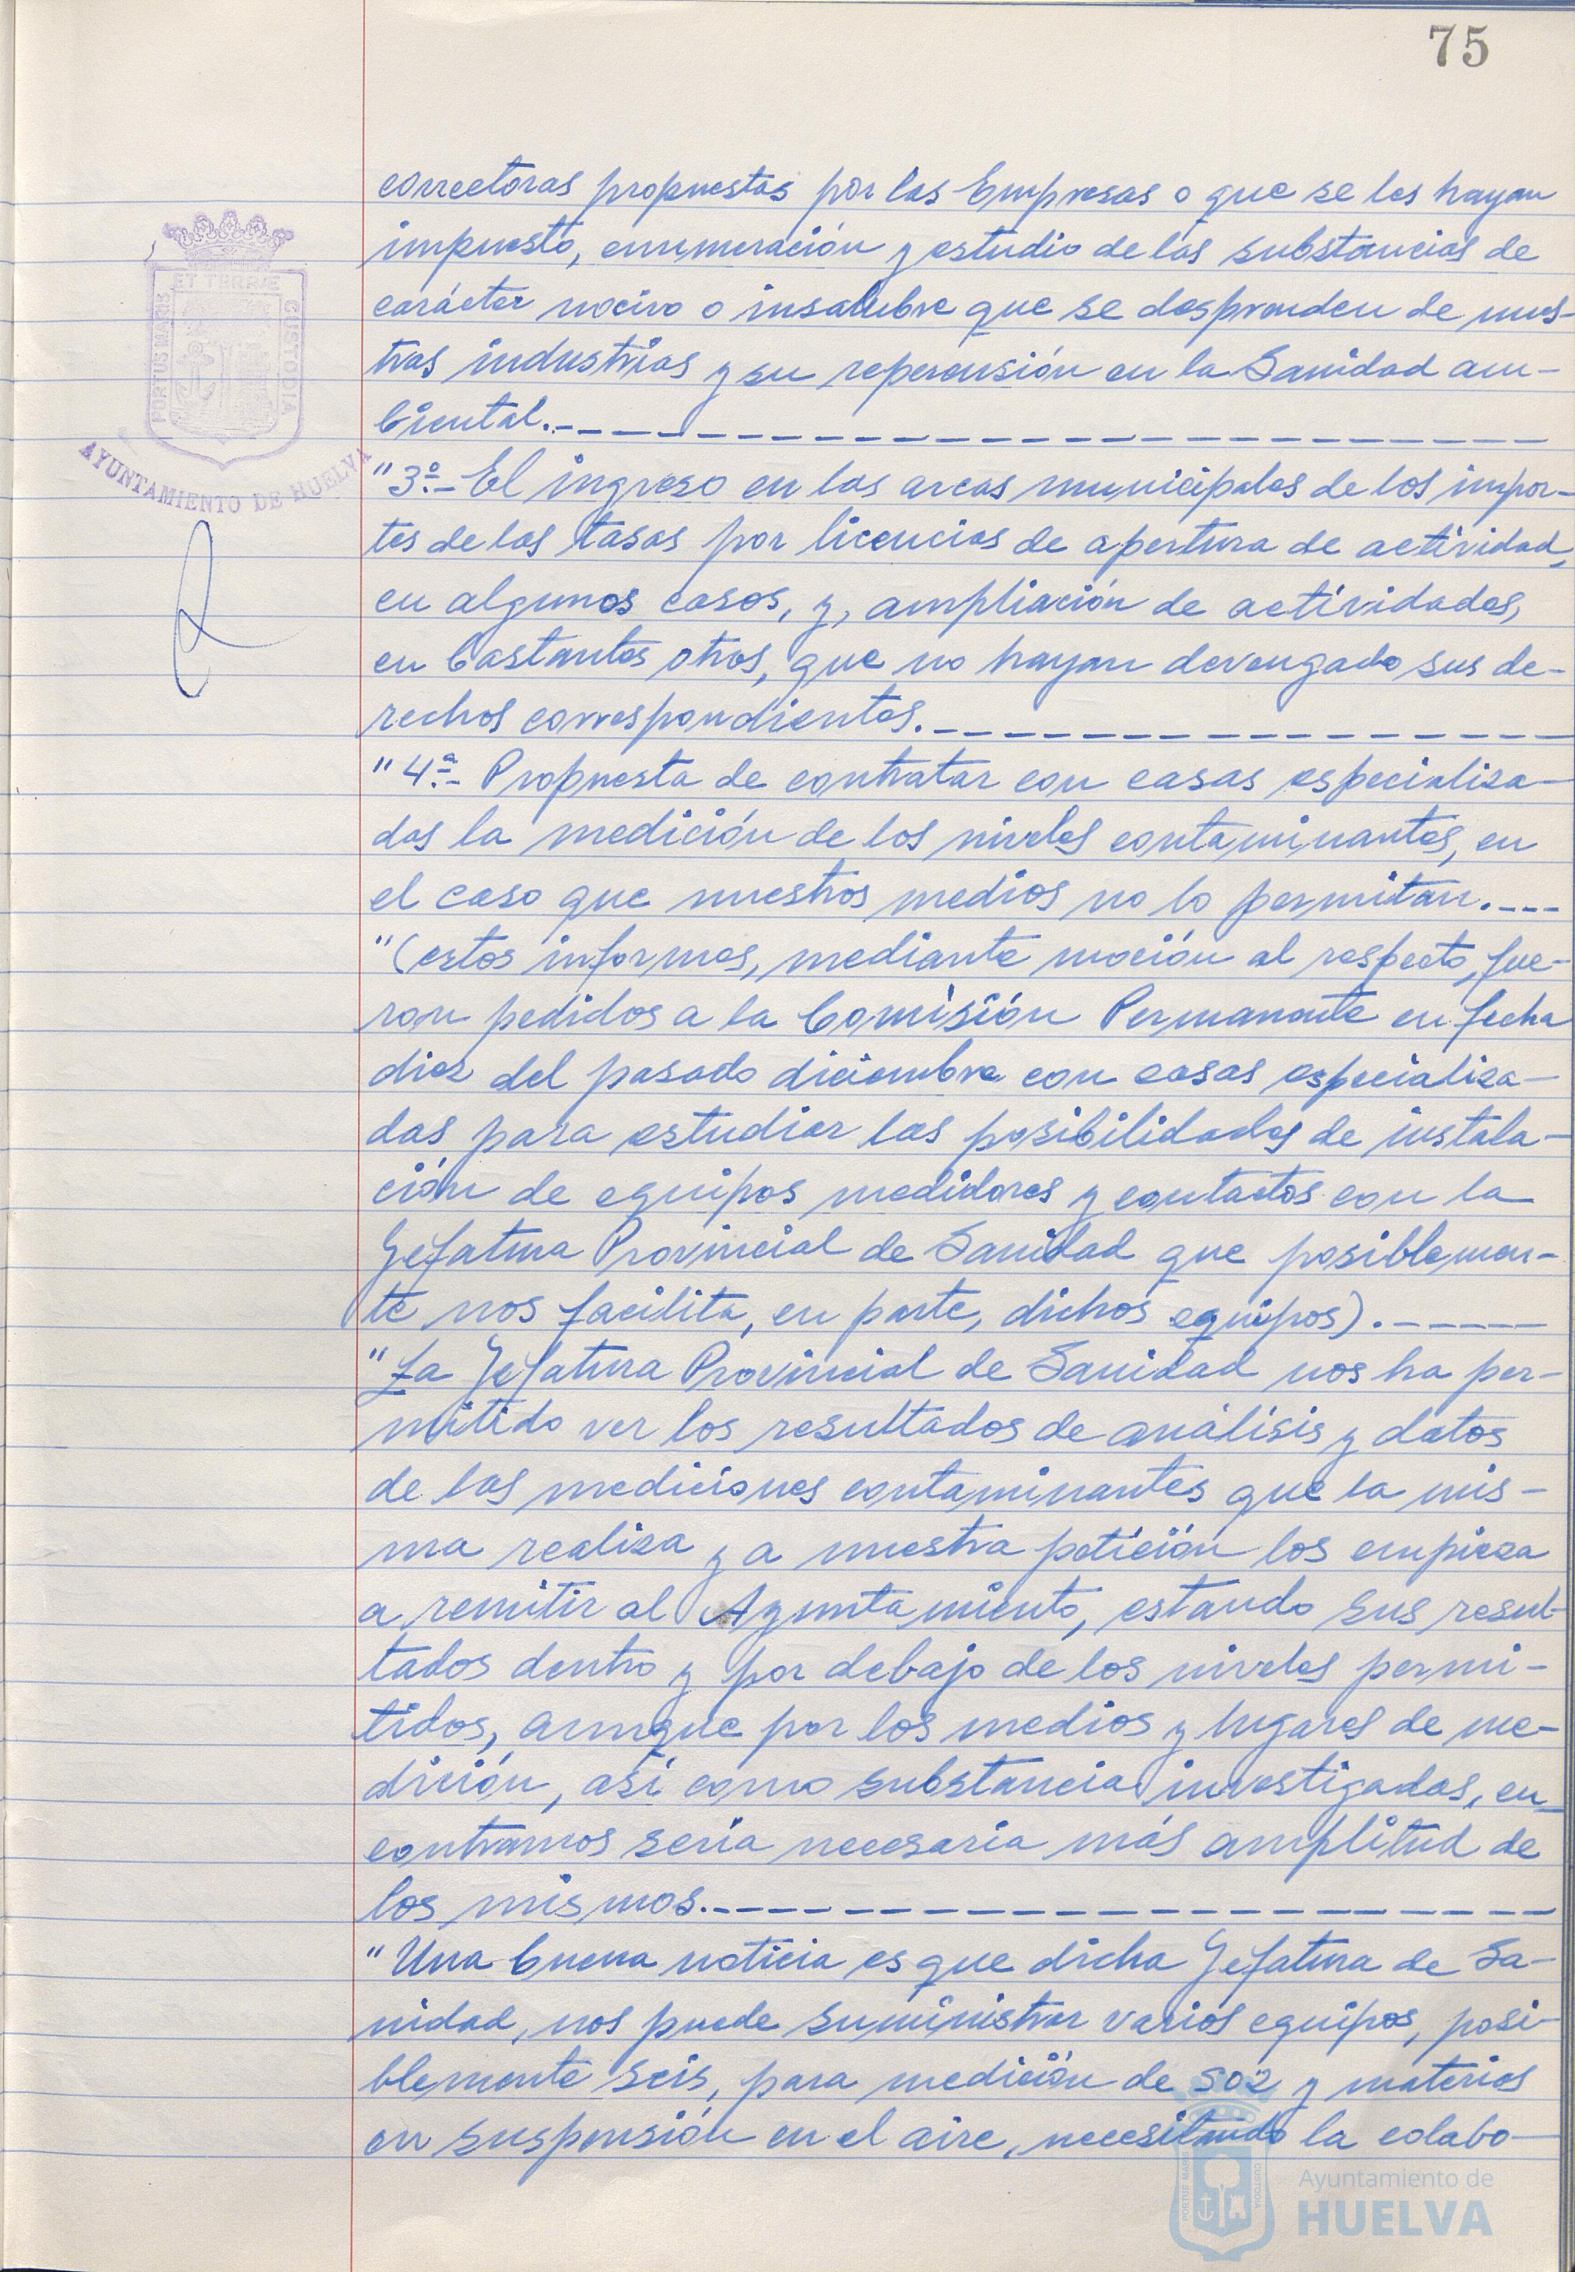 75
correctoras propuestas por las Empresas o que se les hayan
impuesto, enumeración y estudio de las substancias de
carácter nocivo o insalubre que se desprenden de nues-
tras industrias y su repercusión en la Sanidad am-
biental.
"3º.- El ingreso en las arcas municipales de los impor-
tes de las tasas por licencias de apertura de actividad,
en algunos casos, y, ampliación de actividades,
en bastantes otros, que no hayan devengado sus de-
rechos correspondientes.
"4ª.- Propuesta de contratar con casas especializa-
das la medición de los niveles contaminantes, en
el caso que nuestros medios no lo permitan.
"(estos informes, mediante moción al respecto, fue-
ron pedidos a la Comisión Permanente en fecha
diez del pasado diciembre con casas especializa-
das para estudiar las posibilidades de instala-
ción de equipos medidores y contactos con la
Jefatura Provincial de Sanidad que posiblemen-
te nos facilita, en parte, dichos equipos).
"La Jefatura Provincial de Sanidad nos ha per-
mitido ver los resultados de análisis y datos
de las mediciones contaminantes que la mis-
ma realiza y a nuestra petición los empieza
a remitir al Ayuntamiento, estando sus resul-
tados dentro y por debajo de los niveles permi-
tidos, aunque por los medios y lugares de me-
dición, así como substancias investigadas, en-
contramos sería necesaria más amplitud de
los mismos.
"Una buena noticia es que dicha Jefatura de Sa-
nidad, nos puede suministrar varios equipos, posi-
blemente seis, para medición de SO2 y materias
en suspensión en el aire, necesitando la colabo-
PORTUS MARIS
ET TERRAE
CUSTODIA
AYUNTAMIENTO DE HUELVA
Ayuntamiento de
HUELVA